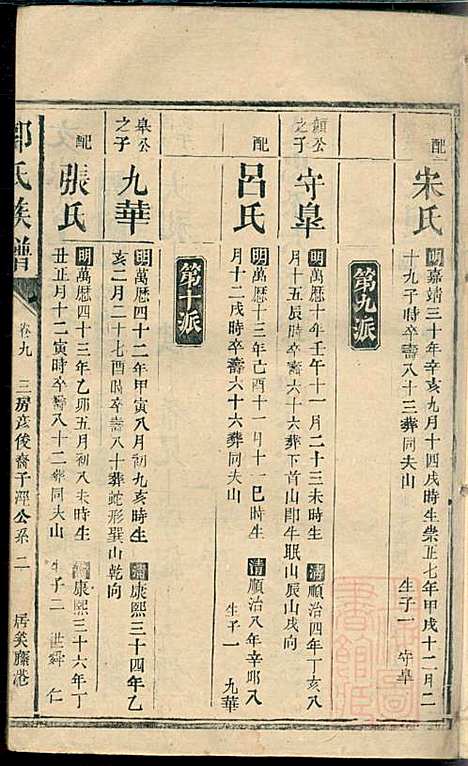 配 宋氏 明嘉靖三十年辛亥九月十四戌時生崇正七年甲戌十二月二
十九子時卒壽八十三葬同夫山 生子一 守皐
第九派
顔公之子 守皐 明萬曆十年壬午十一月二十三未時生 清順治四年丁亥八
月十五辰時卒壽六十六葬下首山即牛眠山辰山戌向
配 呂氏 明萬曆十三年乙酉十一月十一巳時生 清順治八年辛卯八
月十二戌時卒壽六十六葬同夫山 生子一 九華
第十派
皐公之子 九華 明萬曆四十二年甲寅八月初九亥時生 清康熙三十四年乙
亥二月二十七酉時卒壽八十葬蛇形巽山乾向
配 張氏 明萬曆四十三年乙卯五月初八未時生 清康熙三十六年丁
丑正月十二寅時卒壽八十二葬同夫山 生子二 世舜 仁
氏族譜 卷九 三房彥俊裔子 公系 二 居美 港